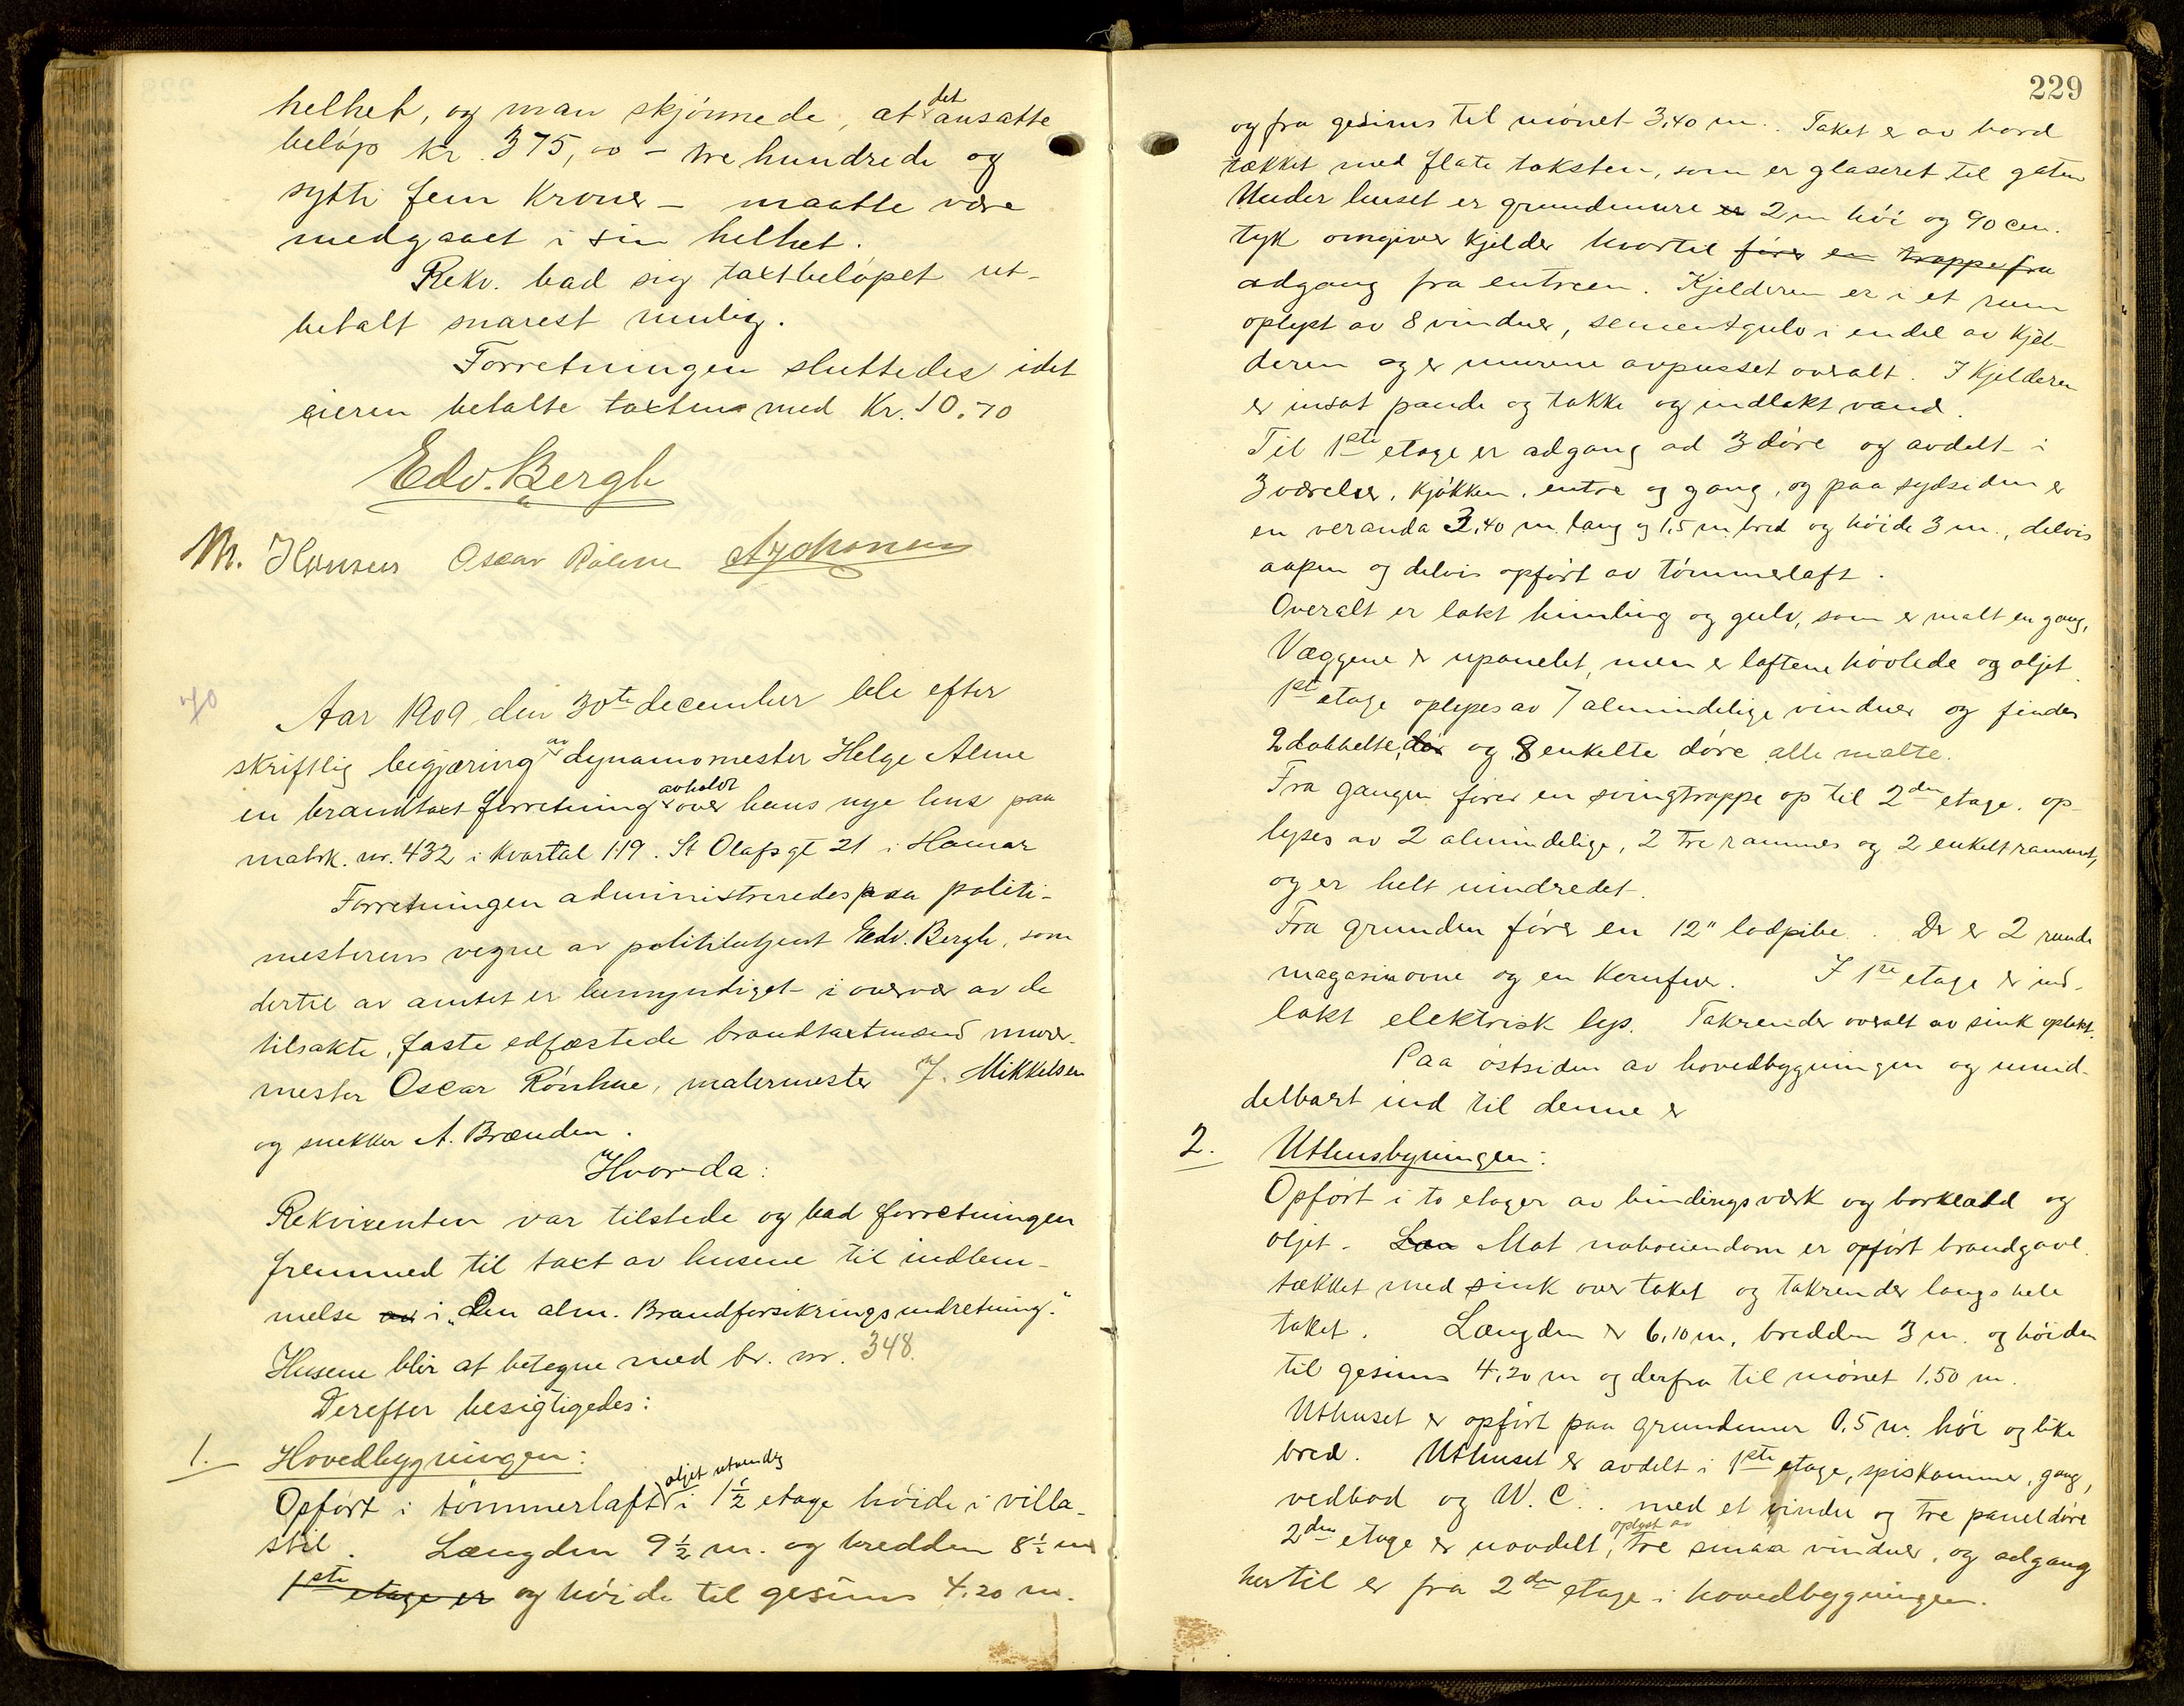 helhet, og man skjønnede, at det ansatte
beløp kr. 375,00 - tre hundrede og
sytti fem Kroner - maatte være
medgaaet i sin helhet.
Rekv. bad sig taxtbeløpet ut-
betalt snarest mulig.
Forretningen sluttedes idet
eieren betalte taxten med Kr. 10.70
Edv. Bergh
M. Hansen Oscar
70
Aar 1909 den 30te december ble efter
skriftlig begjæring av dynamomester Helge Alme
en brandtaxt forretning avholdt over hans nye hus paa
matrk. nr. 432 i Kvartal 119. St Olafs gt 21 i Hamar
Forretningen administreredes paa politi-
mesterens vegne av politibetjent Edv. Bergh, som
dertil av amtet er bemyndiget i overvær av de
tilsakte, faste edfæstede brandtaxtmænd murer-
mester Oscar Rønhne, malermester J. Mikkelsen
og snekker A. Brænden.
Hvor da:
Rekvirenten var tilstede og bad forretningen
fremmed til taxt av husene til indlem-
melse i "Den alm. Brandforsikringsindretning."
Husene blir at betegne med br. nr. 348.
Derefter besigtigedes:
1. Hovedbygningen:
Opført i tømmerlaft oljet utvendig i 1½ etage høide i villa-
stil. Længden 9½ m. og bredden 8½ m
1ste etage er og høide til gesims 4.20 m.
229
og fra gesims til mønet 3.40 m. Taket er av bord
tækket med flate taksten, som er glaseret til gaten
Under huset er grundmure er 2 m høi og 90 cm.
tyk omgiver kjelder hvortil fører en trappe fra
adgang fra entreen. Kjelderen er i et rum
oplyst av 8 vinduer, sementgulv i en del av Kjel-
deren og er murene avpusset overalt. I Kjelderen
er insat pande og takke og indlakt vand.
Til 1ste etage er adgang ad 3 døre og avdelt i
3 værelser, kjøkken, entre og gang, og paa sydsiden er
en veranda 3.40 m. lang og 1,5 m. bred og høide 3 m., delvis
aapen og delvis opført av tømmerlaft.
Overalt er lakt himling og gulv, som er malt en gang,
Væggene er upanelet, men er laftene høvlede og oljet.
1ste etage oplyses av 7 almindelige vinduer og findes
2 dobbelte, dør og 8 enkelte døre alle malte.
Fra gangen fører en svingtrappe op til 2den etage. op-
lyses av 2 almindelige, 2 tre rammes og 2 enkelt rammet,
og er helt uindredet.
Fra grunden fører en 12" lodpibe. Der er 2 runde
magasinovne og en Komfur. I 1ste etage er ind-
lakt elektrisk lys. Takrender overalt av sink oplakt.
Paa østsiden av hovedbygningen og umid-
delbart ind til denne er
2. Uthusbyningen:
Opført i to etager av bindingsværk og bordklædd og
oljet. Mot naboeiendom er opført brandgavl.
tækket med sink over taket og takrender langs hele
taket. Længden er 6,10 m, bredden 3 m. og høiden
til gesims 4.20 m og derfra til mønet 1.50 m.
Uthuset er opført paa grundmur 0.5 m. høi og like
bred. Uthuset er avdelt i 1ste etage, spiskammer, gang,
vedbod og W.C. med et vindu og tre paneldøre
2den etage er uavdelt, oplyst av tre smaa vinduer, og adgang
hertil er fra 2den etage i hovedbygningen.